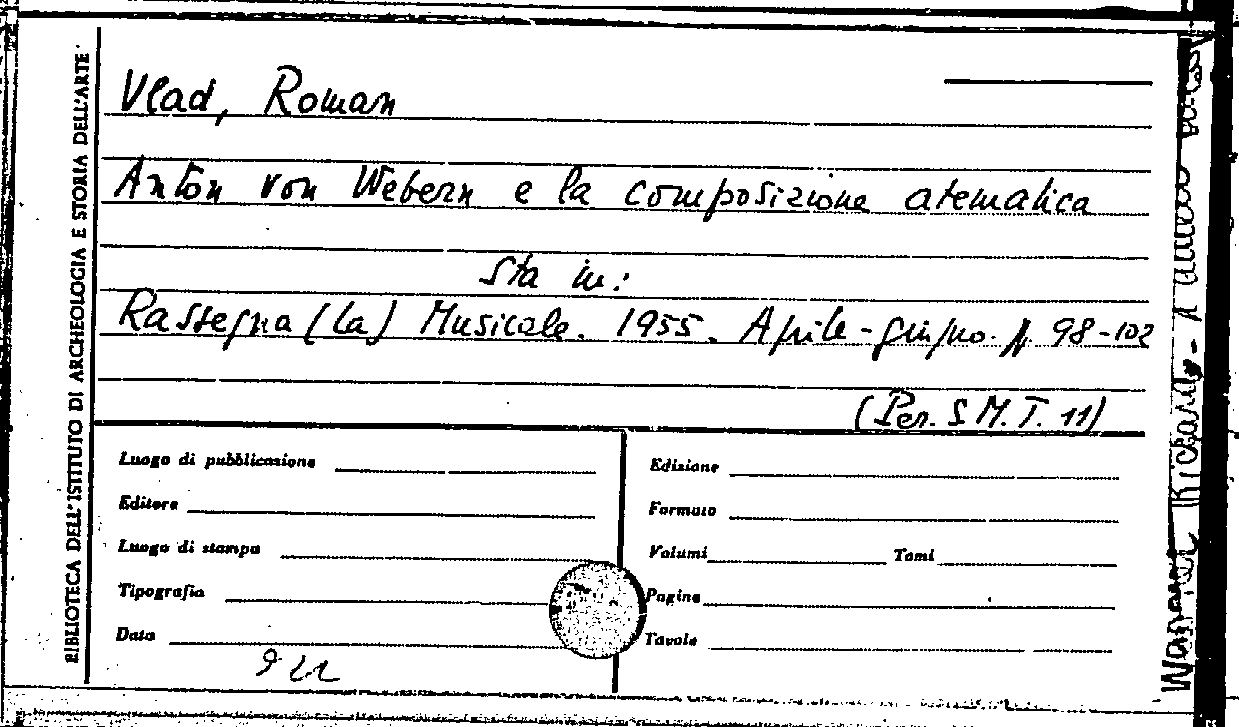 BIBLIOTECA DELL'ISTITUTO DI ARCHEOLOGIA E STORIA DELL'ARTE
Vlad, Roman
Anton von Webern e la composizione atematica
sta in:
Rassegna (La) Musicale. 1955. Aprile-giugno. p. 98-102
(Per. S.M.T. 11)
Luogo di pubblicazione
Editore
Luogo di stampa
Tipografia
Data
Edizione
Formato
Volumi Tomi
Pagine
Tavole